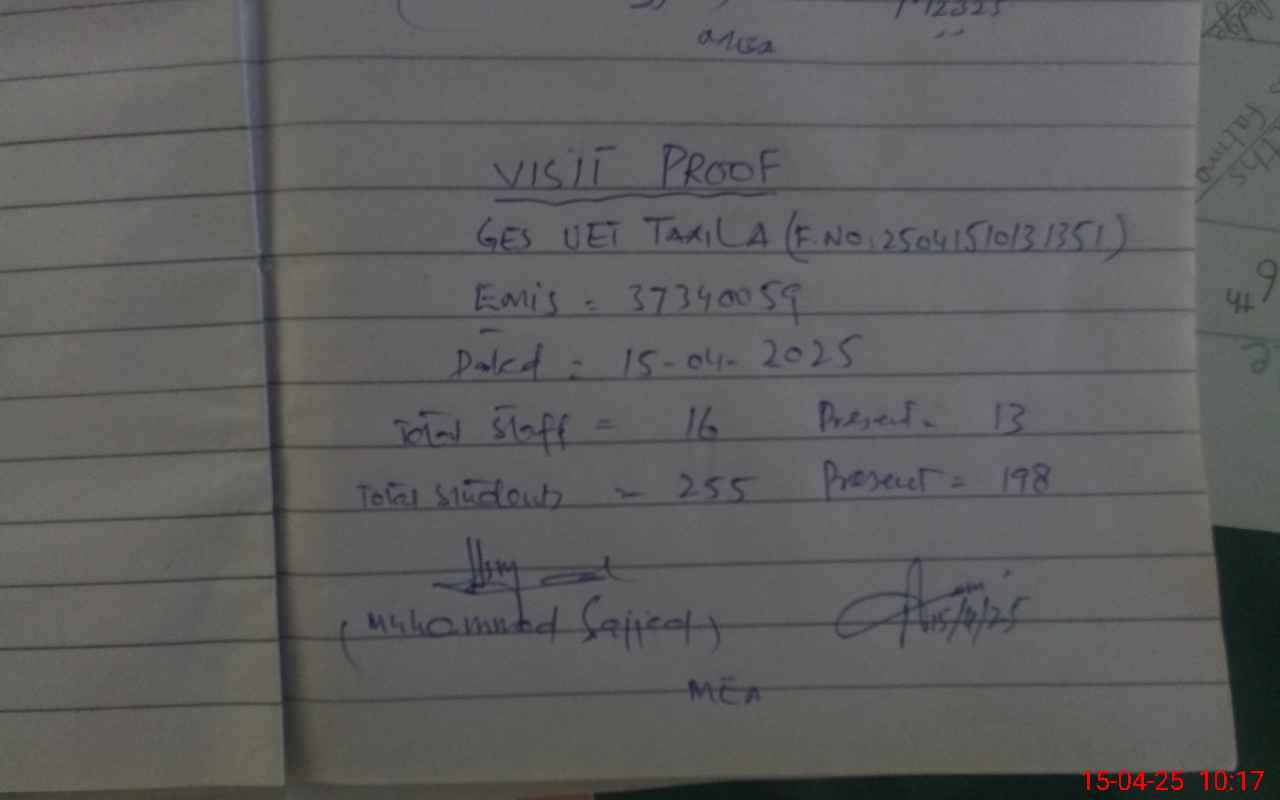 VISIT PROOF
GES UET TAXILA (F.NO:25041510131351)
Emis = 37340059
Dated = 15-04-2025
Total Staff = 16 Present = 13
Total Students = 255 Present = 198
(Muhammad Sajjad) 15/4/25
MEA
15-04-25 10:17